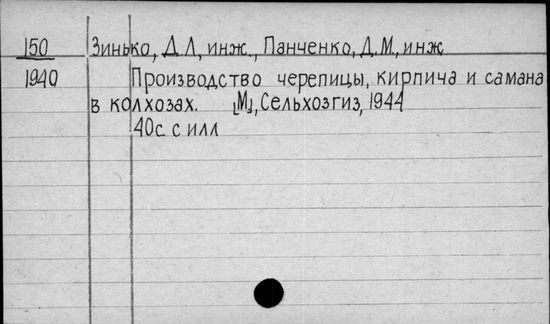 150 Зинько, Д.Л, инж., Панченко, Д.М, инж
1940 Производство черепицы, кирпича и самана
в колхозах. [М], Сельхозгиз, 1944
40с. с илл